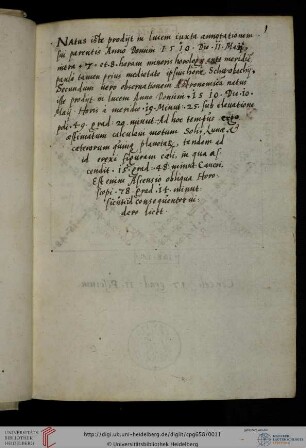 1
Natus iste prodijt in lucem iuxta annotationem
sui parentis Anno Domini 1510. Die 11. Maij
inter 7. et 8. horam minoris horologij ante meridiem
paulò tamen prius medietate ipsius horae
Secundum uero obseruationem Astronomicā natus
iste prodijt in lucem Anno Domini. 1510. Die. 10.
Maij Horis à meridie 19. Minut. 25. sub eleuatione
poli. 49. grad. 29. minut. Ad hoc tempus
calculum motum Solis, Lunae, &
ceterorum quinq planetarū, tandem ad
id erexi figuram caeli. in qua as-
cendit. 15. grad. 48. minut. Cancri.
Est enim Ascensio obliqua Horo-
scopi. 78. grad. 14. minut.
sicuti id consequenter ui-
dere licet.
http://digi.ub.uni-heidelberg.de/diglit/cpg656/0011
© Universitätsbibliothek Heidelberg
UNIVERSITÄTS-
BIBLIOTHEK
HEIDELBERG